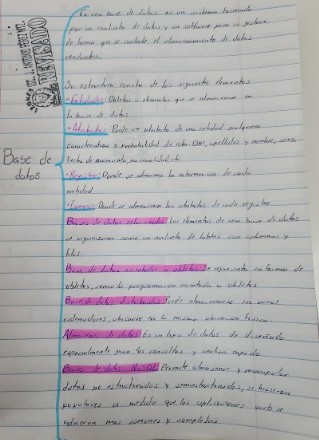 REVISADO
Base de datos
Es una base de datos es un sistema formado
por un conjunto de datos y un software para su gestión
de forma que se controle el almacenamiento de datos
Su estructura consta de los siguientes elementos
-Entidades: Objetos o elementos que se almacenan en
la base de datos
-Atributos: Puede un atributo de una entidad cualquiera
característica o DNI, apellidos y nombre, sexo,
fecha de nacimiento, nacionalidad
-Registro: Donde se almacena la información de cada
entidad
-Campos: Donde se almacenan los atributos de cada registro
Bases de datos Los elementos de una base de datos
se organizan como un conjunto de tablas con columnas y
filas
Base de datos orientadas a objetos: se representa en formas de
objetos, como la programación orientada a objetos
Base de datos distribuidas: Puede almacenarse en varios
ordenadores, ubicarse en la misma ubicación física
Almacenes de datos: Es un tipo de datos de diseñado
especialmente para las consultas y análisis rápido
Bases de datos NoSQL: Permite almacenar y manipular
datos no estructurados y semiestructurados, se hicieron
populares a medida que las aplicaciones web se
volvieron mas comunes y complejas